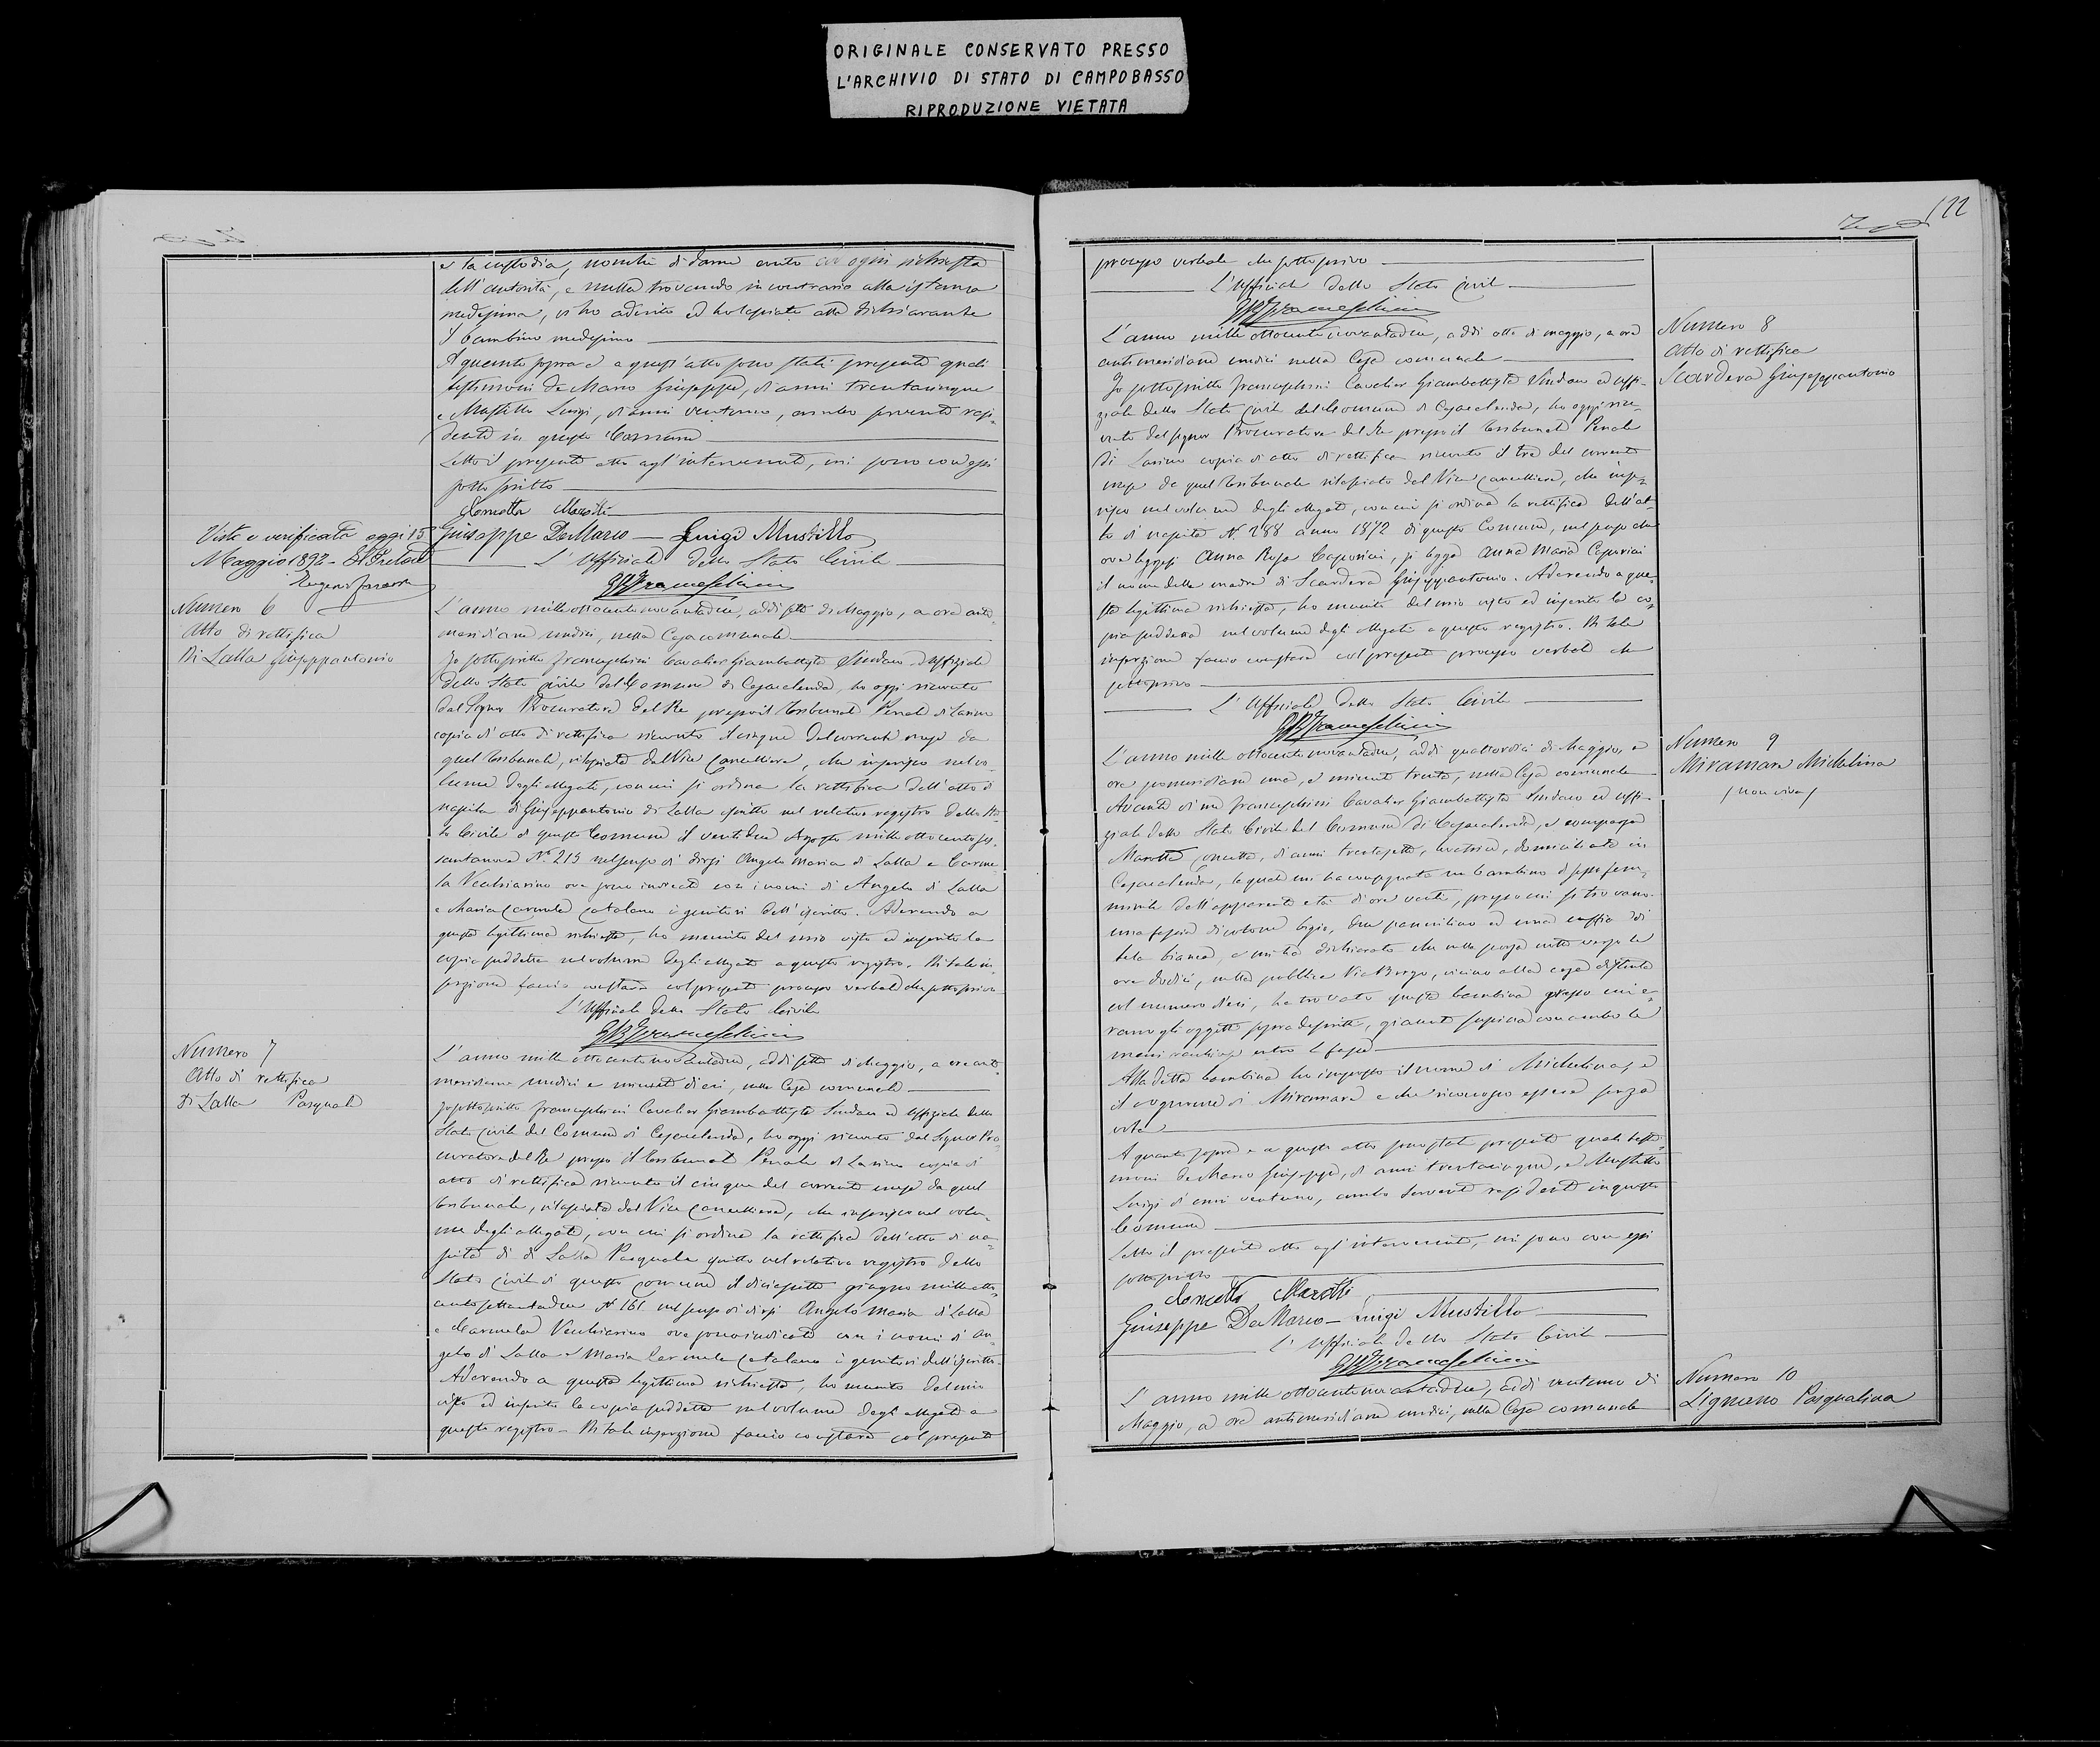 ORIGINALE CONSERVATO PRESSO
L'ARCHIVIO DI STATO DI CAMPOBASSO
RIPRODUZIONE VIETATA
e la custodia, nonchè di darne conto ad ogni richiesta
dell'autorità, e nulla trovando in contrario alla istanza
medesima, vi ho aderito ed ho lasciato alla dichiarante
il bambino medesimo
A quanto sopra e a quest'atto sono stati presenti quali
testimoni De Marco Giuseppe, di anni trentacinque
e Mustillo Luigi, di anni ventuno, ambo serventi resi-
denti in questo Comune
Letto il presente atto agl'intervenuti, mi sono con essi
sottoscritto
Concetta Marotti
Visto e verificato oggi 15
Maggio 1892 - Il Pretore
Giuseppe DeMarco — Luigi Mustillo
L'Uffiziale dello Stato Civile
GBFranceschini
Numero 6
Atto di rettifica
Di Lalla Giuseppantonio
L'anno milleottocentonovantadue, addì sette di Maggio, a ore anti-
meridiane undici, nella Casa comunale
Io sottoscritto Franceschini Cavalier Giambattista Sindaco ed Uffiziale
dello Stato Civile del Comune di Casacalenda, ho oggi ricevuto
dal Signor Procuratore del Re presso il Tribunale Penale di Larino
copia di atto di rettifica ricevuto il cinque del corrente mese da
quel Tribunale, rilasciata dal Vice Cancelliere, che inserisco nel vo-
lume degli allegati, con cui si ordina la rettifica dell'atto di
nascita di Giuseppantonio di Lalla scritto nel relativo registro dello Sta-
to Civile di questo Comune il ventidue Agosto milleottocentoses-
santanove N.° 215 nel senso di dirsi Angelo Maria di Lalla e Carme-
la Vecchiarino ove sono indicati con i nomi di Angelo di Lalla
e Maria Carmela Catalano i genitori dell'iscritto. Aderendo a
questa legittima richiesta, ho munito del mio visto ed inserito la
copia suddetta nel volume degli allegati a questo registro. Di tale in-
serzione faccio constare col presente processo verbale che sottoscrivo
L'Uffiziale dello Stato Civile
GBFranceschini
Numero 7
Atto di rettifica
Di Lalla Pasquale
L'anno milleottocentonovantadue, addì sette di Maggio, a ore anti-
meridiane undici e minuti dieci, nella Casa comunale
Io sottoscritto Franceschini Cavalier Giambattista Sindaco ed Uffiziale dello
Stato Civile del Comune di Casacalenda, ho oggi ricevuto dal Signor Pro-
curatore del Re presso il Tribunale Penale di Larino copia di
atto di rettifica ricevuto il cinque del corrente mese da quel
Tribunale, rilasciata dal Vice Cancelliere, che inserisco nel volu-
me degli allegati, con cui si ordina la rettifica dell'atto di na-
scita di di Lalla Pasquale scritto nel relativo registro dello
Stato Civile di questo Comune il diciassette giugno milleotto-
centosettantadue N° 161 nel senso di dirsi Angelo Maria di Lalla
e Carmela Vecchiarino ove sono indicati con i nomi di An-
gelo di Lalla e Maria Carmela Catalano i genitori dell'iscritto.
Aderendo a questa legittima richiesta, ho munito del mio
visto ed inserito la copia suddetta nel volume degli allegati a
questo registro - Di tale inserzione faccio constare col presente
122
processo verbale che sottoscrivo
L'Uffiziale dello Stato Civile
GBFranceschini
Numero 8
Atto di rettifica
Scardera Giuseppantonio
L'anno milleottocentonovantadue, addì otto di maggio, a ore
antimeridiane undici nella Casa comunale
Io sottoscritto Franceschini Cavalier Giambattista Sindaco ed Uffi-
ziale dello Stato Civile del Comune di Casacalenda, ho oggi rice-
vuto dal signor Procuratore del Re presso il Tribunale Penale
di Larino copia di atto di rettifica ricevuto il tre del corrente
mese da quel Tribunale rilasciata dal Vice Cancelliere, che inse-
risco nel volume degli allegati, con cui si ordina la rettifica dell'at-
to di nascita N.° 288 anno 1872 di questo Comune, nel senso che
ove leggesi Anna Rosa Caporicci, si legga Anna Maria Caporicci
il nome della madre di Scardera Giuseppantonio. Aderendo a que-
sta legittima richiesta, ho munito del mio visto ed inserito la co-
pia suddetta nel volume degli allegati a questo registro. Di tale
inserzione faccio constare col presente processo verbale che
sottoscrivo
L'Uffiziale dello Stato Civile
GBFranceschini
Numero 9
Miramare Michelina
(non vive)
L'anno milleottocentonovantadue, addì quattordici di Maggio, a
ore pomeridiane una, e minuti trenta, nella Casa comunale
Avanti di me Franceschini Cavalier Giambattista Sindaco ed Uffi-
ziale dello Stato Civile del Comune di Casacalenda, è comparsa
Marotti Concetta, di anni trentasette, levatrice, domiciliata in
Casacalenda, la quale mi ha consegnato un bambino di sesso fem-
minile dell'apparente età di ore venti, presso cui si trovano
una fascia di cotone bigio, due pannilino ed una cuffia di
tela bianca, e mi ha dichiarato che nella scorsa notte verso le
ore dodici, nella pubblica Via Borgo, vicino alla casa distinta
col numero dieci, ha trovato questa bambina presso cui e-
rano gli oggetti sopradescritti, giacente supina con ambo le
mani racchiuse entro le fasce
Alla detta bambina ho imposto il nome di Michelina, e
il cognome di Miramare e che riconosco essere senza
vita
A quanto sopra e a questo atto sono stati presenti quali testi-
moni DeMarco Giuseppe, di anni trentacinque, e Mustillo
Luigi di anni ventuno, ambo serventi residenti in questo
Comune
Letto il presente atto agl'intervenuti, mi sono con essi
sottoscritto
Concetta Marotti
Giuseppe DeMarco — Luigi Mustillo
L'Uffiziale dello Stato Civile
GBFranceschini
Numero 10
Lignano Pasqualina
L'anno milleottocentonovantadue, addì ventuno di
Maggio, a ore antimeridiane undici, nella Casa comunale